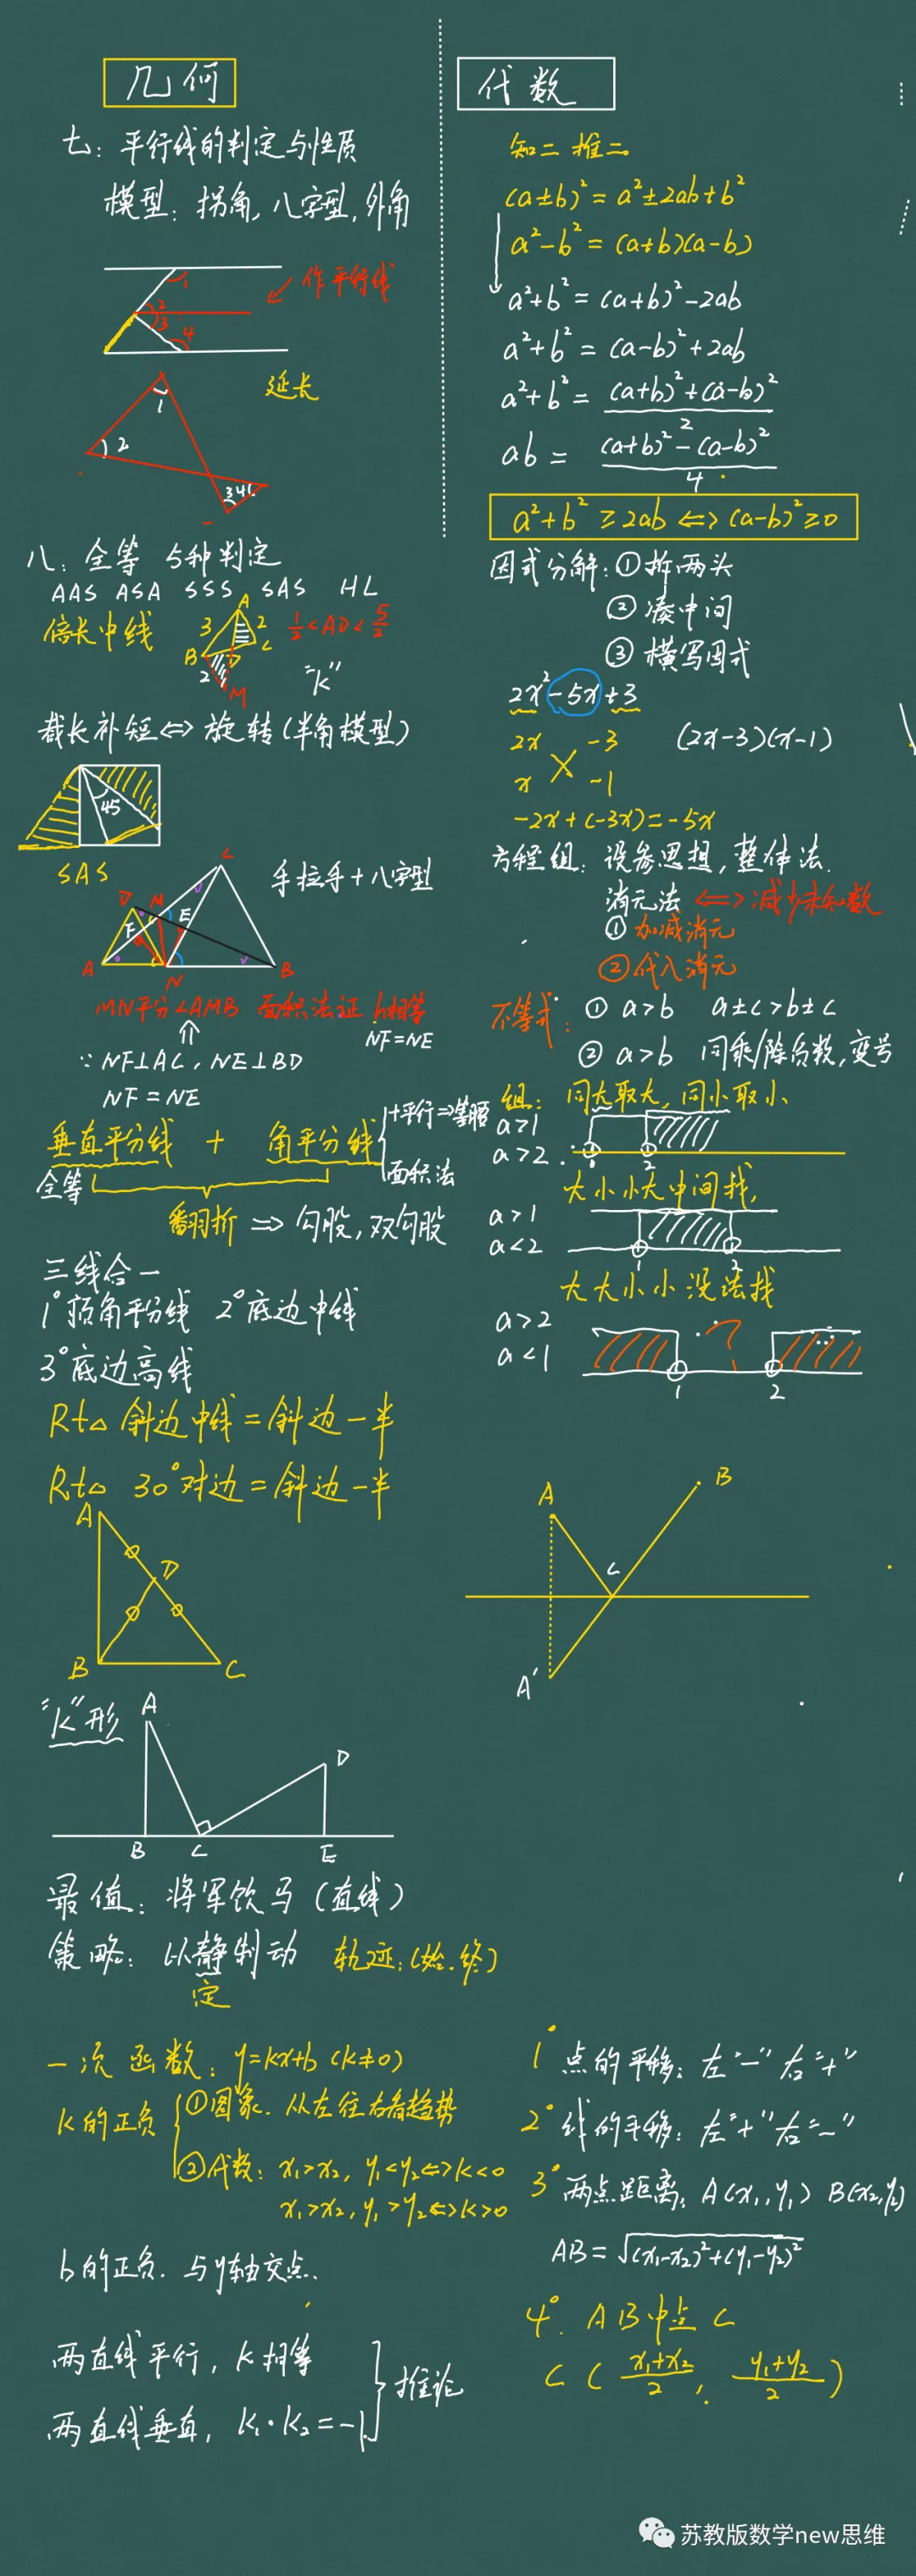 几何
七：平行线的判定与性质
模型：拐角，八字型，外角
1
2
3
4
作平行线
延长
1
2
3 4
八：全等 5种判定
AAS ASA SSS SAS HL
倍长中线
A
3
2
B
D
C
2
M
1/2<AD<5/2
"K"
截长补短⇔旋转(半角模型)
45
SAS
手拉手+八字型
C
D
M
E
F
A
N
B
MN平分∠AMB 面积法证 h相等
⇑
NF=NE
∵NF⊥AC，NE⊥BD
NF=NE
垂直平分线 + 角平分线
+平行⇒等腰
面积法
全等
翻折 ⇒ 勾股，双勾股
三线合一
1°顶角平分线 2°底边中线
3°底边高线
Rt△ 斜边中线=斜边一半
Rt△ 30°对边=斜边一半
A
D
B
C
"K"形
A
D
B
C
E
最值：将军饮马(直线)
策略：以静制动 轨迹：(始.终)
定
一次函数：y=kx+b (k≠0)
k的正负
①图象．从左往右看趋势
②代数：x₁>x₂，y₁<y₂⇔k<0
x₁>x₂，y₁>y₂⇔k>0
b的正负．与y轴交点．
两直线平行，k相等
两直线垂直，k₁·k₂=-1
推论
代数
知二推二
(a±b)²=a²±2ab+b²
a²-b²=(a+b)(a-b)
a²+b²=(a+b)²-2ab
a²+b²=(a-b)²+2ab
a²+b²=((a+b)²+(a-b)²)/2
ab=((a+b)²-(a-b)²)/4
a²+b²≥2ab⇔(a-b)²≥0
因式分解：①拆两头
②凑中间
③横写因式
2x²-5x+3
2x -3 (2x-3)(x-1)
x -1
-2x+(-3x)=-5x
方程组：设参思想，整体法．
消元法⇔减少未知数
①加减消元
②代入消元
不等式：①a>b a±c>b±c
②a>b 同乘/除负数，变号
组：同大取大，同小取小
a>1
a>2
1
2
大小小大中间找，
a>1
a<2
1
2
大大小小没法找
a>2
a<1
?
1
2
A
B
C
A'
1°点的平移：左"-"右"+"
2°线的平移：左"+"右"-"
3°两点距离：A(x₁,y₁) B(x₂,y₂)
AB=√((x₁-x₂)²+(y₁-y₂)²)
4°．AB中点C
C((x₁+x₂)/2，(y₁+y₂)/2)
苏教版数学new思维